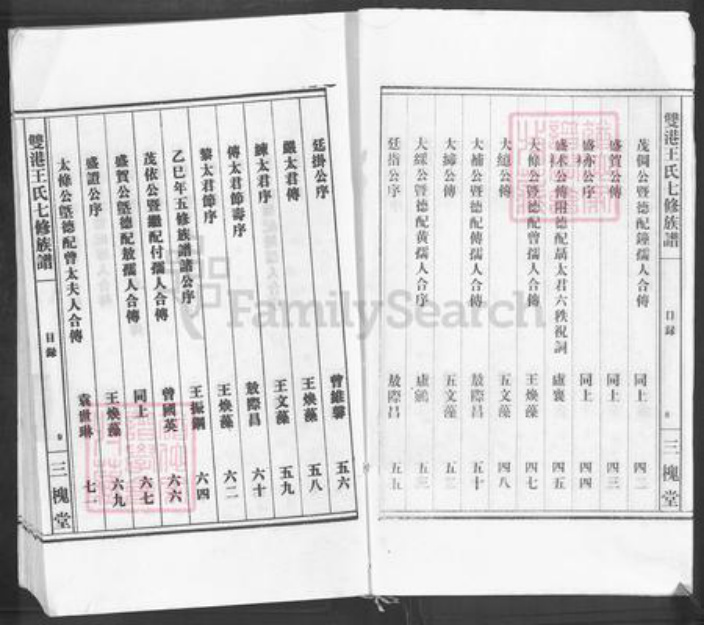 雙港王氏七修族譜
目錄
三槐堂
茂倜公暨德配鐘孺人合傳 同上 四二
盛賀公傳 同上 四三
盛亦公序 同上 四四
盛米公傳附德配聶太君六秩祝詞 盧襄 四五
大條公暨德配曾孺人合傳 王煥藻 四七
大綋公傳 王文藻 四八
大補公暨德配傅孺人合傳 敖際昌 五十
大締公傳 王文藻
大縲公暨德配黃孺人合序 盧鶴 五三
廷指公序 敖際昌 五五
廷掛公序 曾維馨 五六
嚴太君傳 王煥藻 五八
練太君序 王文藻 五九
傅太君節壽序 敖際昌 六十
黎太君節序 王煥藻 六二
乙巳年五修族譜諸公序 王振綱 六四
茂依公暨繼配付孺人合傳 曾國英 六六
盛賀公暨德配敖孺人合傳 同上 六七
盛證公序 王煥藻 六九
太條公暨德配曾太夫人合傳 袁世琳 七一
雙港王氏七修族譜
目錄
三槐堂
FamilySearch